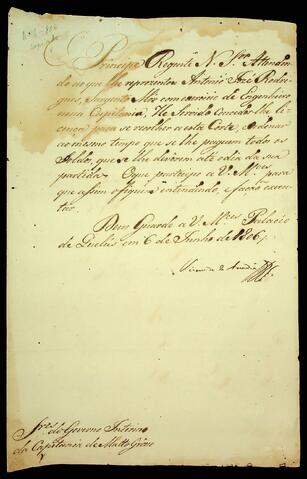 Principe Regente N. Snr. Attenden
do ao que lhe representou Antonio José Rodri
gues, Sargento Mór com exercicio de Engenheiro
nessa Capitania, He Servido Conceder-lhe li
cença para se recolher a esta Corte, e ordenar
ao mesmo tempo que se lhe paguem todos os
Soldos, que se lhe deverem até o dia da sua
partida. O que participo a V. Mces para
que assim o fiquem entendendo e fação execu
tar.
Deus Guarde a V. Mces Palacio
de Queluz em 6 de Junho de 1806,,
Visconde de Anadia
Snres do Governo Interino
da Capitania de Matto Grosso